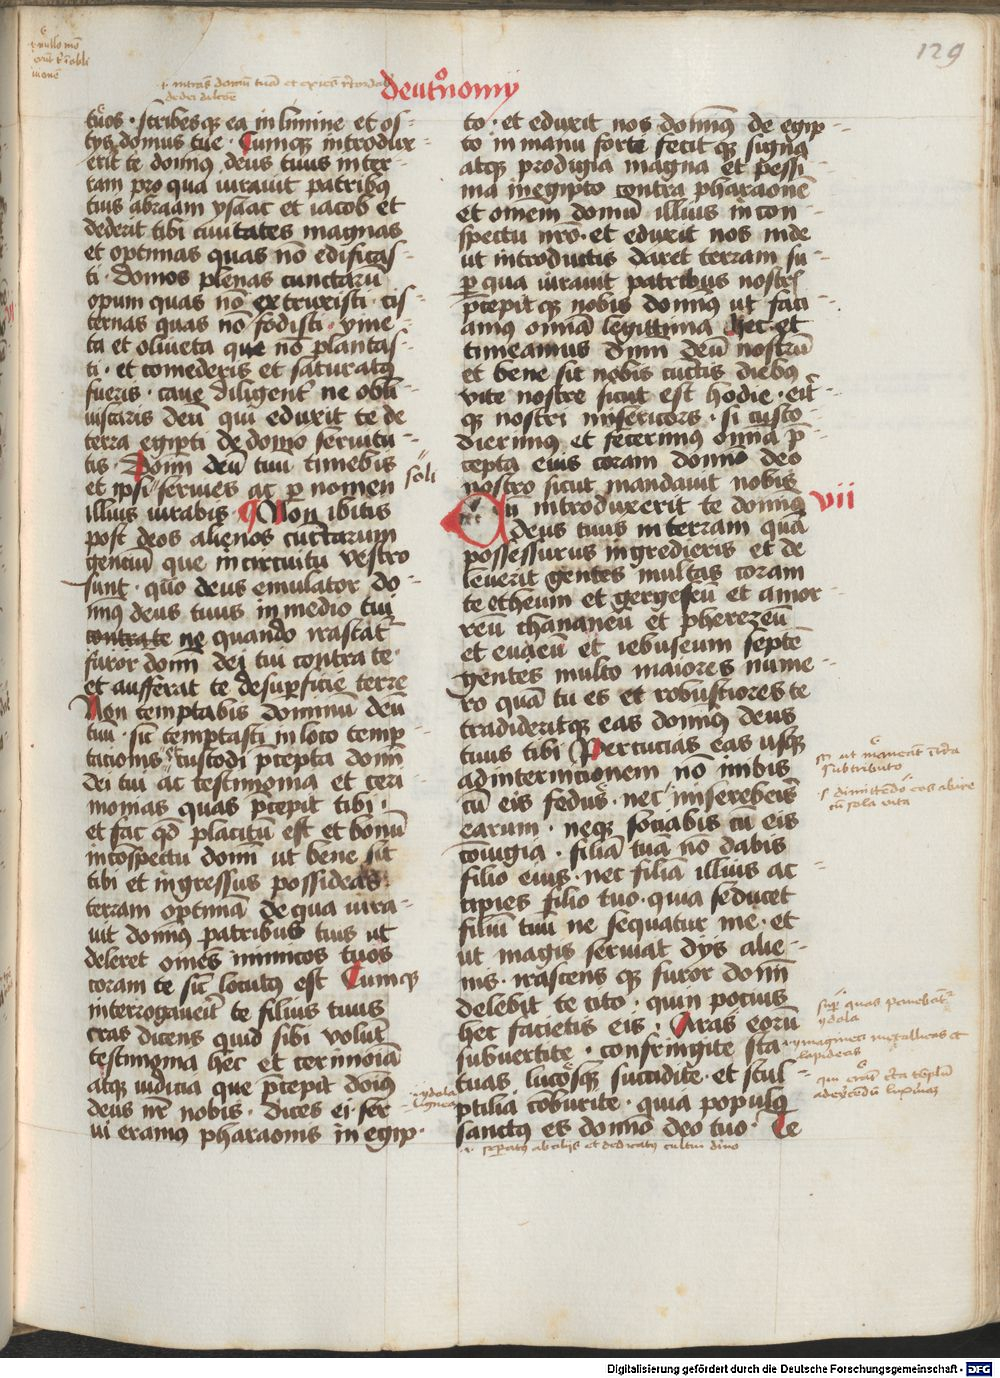 129
deut͛onomy
tuos · scribesq̢ ea in limine et os-
tys domus tue · Cumq̢ introdux-
erit te domin9 deus tuus in ter-
ram pro qua iurauit patrib9
tuis abraam ysaac et iacob et
dederit tibi ciuitates magnas
et optimas quas nō edificas-
ti · domos plenas cunctarū
opum quas nō extruxisti · cis-
ternas quas nō fodisti · vine-
ta et oliueta que nō plantas-
ti · et comederis et saturat9
fueris · caue diligent͛ ne obli-
uiscaris deū qui eduxit te de
terra egipti de domo seruitu-
tis · Domī deū tuū timebis
et ipsi seruies ac p nomen
soli
illius iurabis · Non ibitis
post deos alienos cūctarum
gencium que in circuitu vestro
sunt · quō deus emulator do-
min9 deus tuus in medio tui
contra te ne quando irascat͛
furor domī dei tui contra te ·
et aufferat te de sup̄ficie terre
Non temptabis dominū deū
tuū · sic̄ temptasti in loco temp
tacionis custodi p̄cepta domī
dei tui ac testimonia et ceri-
monias quas p̄cepit tibi ·
et fac qd̄ placitū est et bonū
in cōspectu domī ut bene sit
tibi et ingressus possideas
terram optimā de qua iura-
uit domin9 patribus tuis ut
deleret om̄es inimicos tuos
coram te sic̄ locut9 est Cumq̢
interrogauerit te filius tuus
cras dicens quid sibi volūt
testimonia hec et cerimoīa
atq̢ iudicia que p̄cepit domī9
deus nr̄ nobis · dices ei ser-
ui eram9 pharaonis in egip-
to · et eduxit nos domin9 de egip-
to in manu forte fecitq̢ signa
atq̢ prodigia magna et pessi-
ma in egipto contra pharaonē
et om̄em domū illius in con-
spectu nr̄o · et eduxit nos inde
ut introductis daret terram su-
p qua iurauit patribus nostris
p̄cepitq̢ nobis domin9 ut faci-
amus om̄ia legittima hec et
timeamus dn̄m deū nostrū
et bene sit nobis cūctis dieb9
vite nostre sicut est hodie · erit
q̢ nostri misericors · si custo-
dierim9 et fecerim9 om̄ia p̄-
cepta eius coram domīo deo
nostro sicut mandauit nobis
vii
Cū introduxerit te domin9
deus tuus in terram quā
possessurus ingredieris et de
leuerit gentes multas coram
te etheum et gergeseū et amor-
reū chananeū et pherezeū
et eueū et iebuseum septē
gentes multo maiores nume-
ro quā tu es et robustiores te
tradideritq̢ eas domin9 deus
tuus tibi Percucias eas usq̢
ad internicionem nō inibis
cū eis fedus · nec misereberis
earum · neq̢ sociabis cū eis
cōiugia · filiā tuā nō dabis
filio eius · nec filiā illius ac-
cipies filio tuo · quia seducet
filiū tuū ne sequatur me · et
ut magis seruiat dys alie-
nis · irascensq̢ furor domī
delebit te cito · quin pocius
hec facietis eis · Aras eorū
subuertite · confringite sta-
tuas lucosq̢ succidite · et scul-
ptilia cōburite · quia popul9
sanct9 es domīo deo tuo · Te
Digitalisierung gefördert durch die Deutsche Forschungsgemeinschaft - DFG